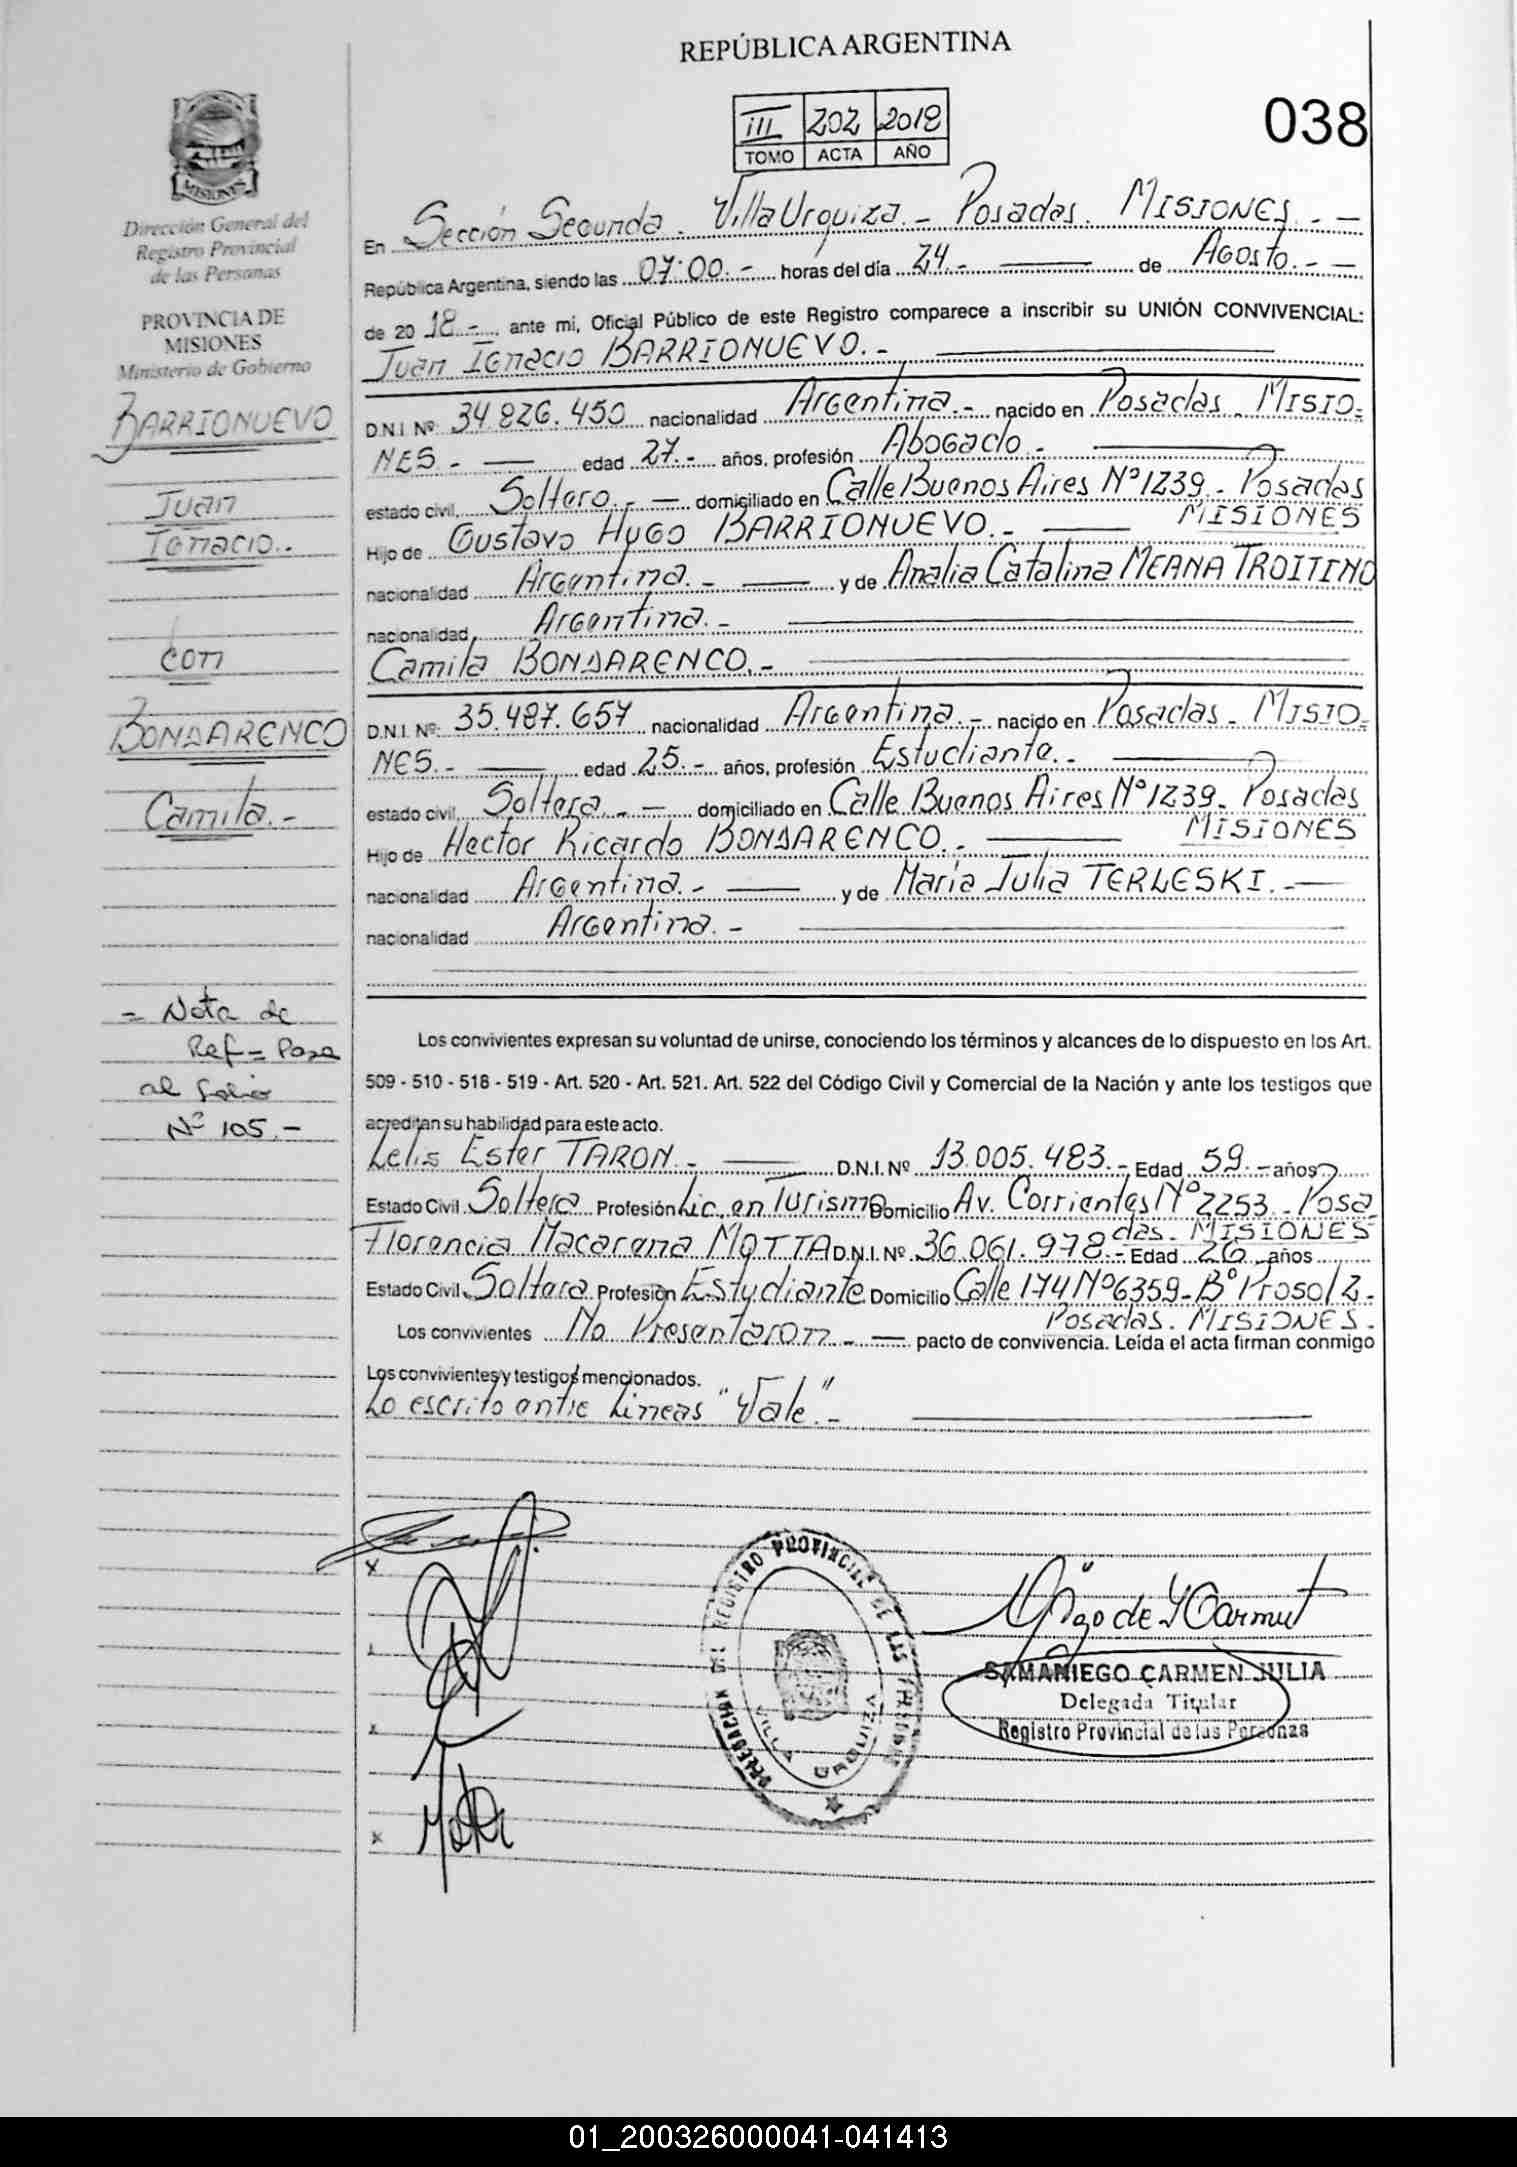 REPÚBLICA ARGENTINA
III 202 2018
TOMO ACTA AÑO
038
MISIONES
Dirección General del
Registro Provincial
de las Personas
PROVINCIA DE
MISIONES
Ministerio de Gobierno
BARRIONUEVO
Juan
Ignacio.-
con
BONDARENCO
Camila.-
= Nota de
Ref = Pasa
al folio
Nº 105.-
En Sección Segunda. Villa Urquiza.- Posadas. MISIONES.- -
República Argentina, siendo las 07:00.- horas del día 24.- de Agosto.- -
de 2018.- ante mi, Oficial Público de este Registro comparece a inscribir su UNIÓN CONVIVENCIAL:
Juan Ignacio BARRIONUEVO.-
D.N.I. Nº 34.826.450 nacionalidad Argentina.- nacido en Posadas. MISIO-
NES.- edad 27.- años, profesión Abogado.-
estado civil Soltero.- domiciliado en Calle Buenos Aires Nº 1239. Posadas
MISIONES
Hijo de Gustavo Hugo BARRIONUEVO.-
nacionalidad Argentina.- y de Analia Catalina MEANA TROITINO
nacionalidad Argentina.-
Camila BONDARENCO.-
D.N.I. Nº 35.487.657 nacionalidad Argentina.- nacido en Posadas. MISIO-
NES.- edad 25.- años, profesión Estudiante.-
estado civil Soltera.- domiciliado en Calle Buenos Aires Nº 1239. Posadas
MISIONES
Hijo de Hector Ricardo BONDARENCO.-
nacionalidad Argentina.- y de Maria Julia TERLESKI.-
nacionalidad Argentina.-
Los convivientes expresan su voluntad de unirse, conociendo los términos y alcances de lo dispuesto en los Art.
509 - 510 - 518 - 519 - Art. 520 - Art. 521. Art. 522 del Código Civil y Comercial de la Nación y ante los testigos que
acreditan su habilidad para este acto.
Lelis Ester TARON.- D.N.I. Nº 13.005.483.- Edad 59.- años
Estado Civil Soltera Profesión Lic. en Turismo Domicilio Av. Corrientes Nº 2253. Posa
das. MISIONES
Florencia Macarena MOTTA D.N.I. Nº 36.061.978.- Edad 26 años
Estado Civil Soltera Profesión Estudiante Domicilio Calle 174 Nº 6359- Bº Prosol 2.-
Posadas. MISIONES.-
Los convivientes No Presentaron.- pacto de convivencia. Leída el acta firman conmigo
Los convivientes y testigos mencionados.
Lo escrito entre Lineas "Vale".-
x
x
x
x Motta
DELEGACION DEL REGISTRO PROVINCIAL DE LAS PERSONAS
VILLA URQUIZA
SAMANIEGO CARMEN JULIA
Delegada Titular
Registro Provincial de las Personas
01_200326000041-041413